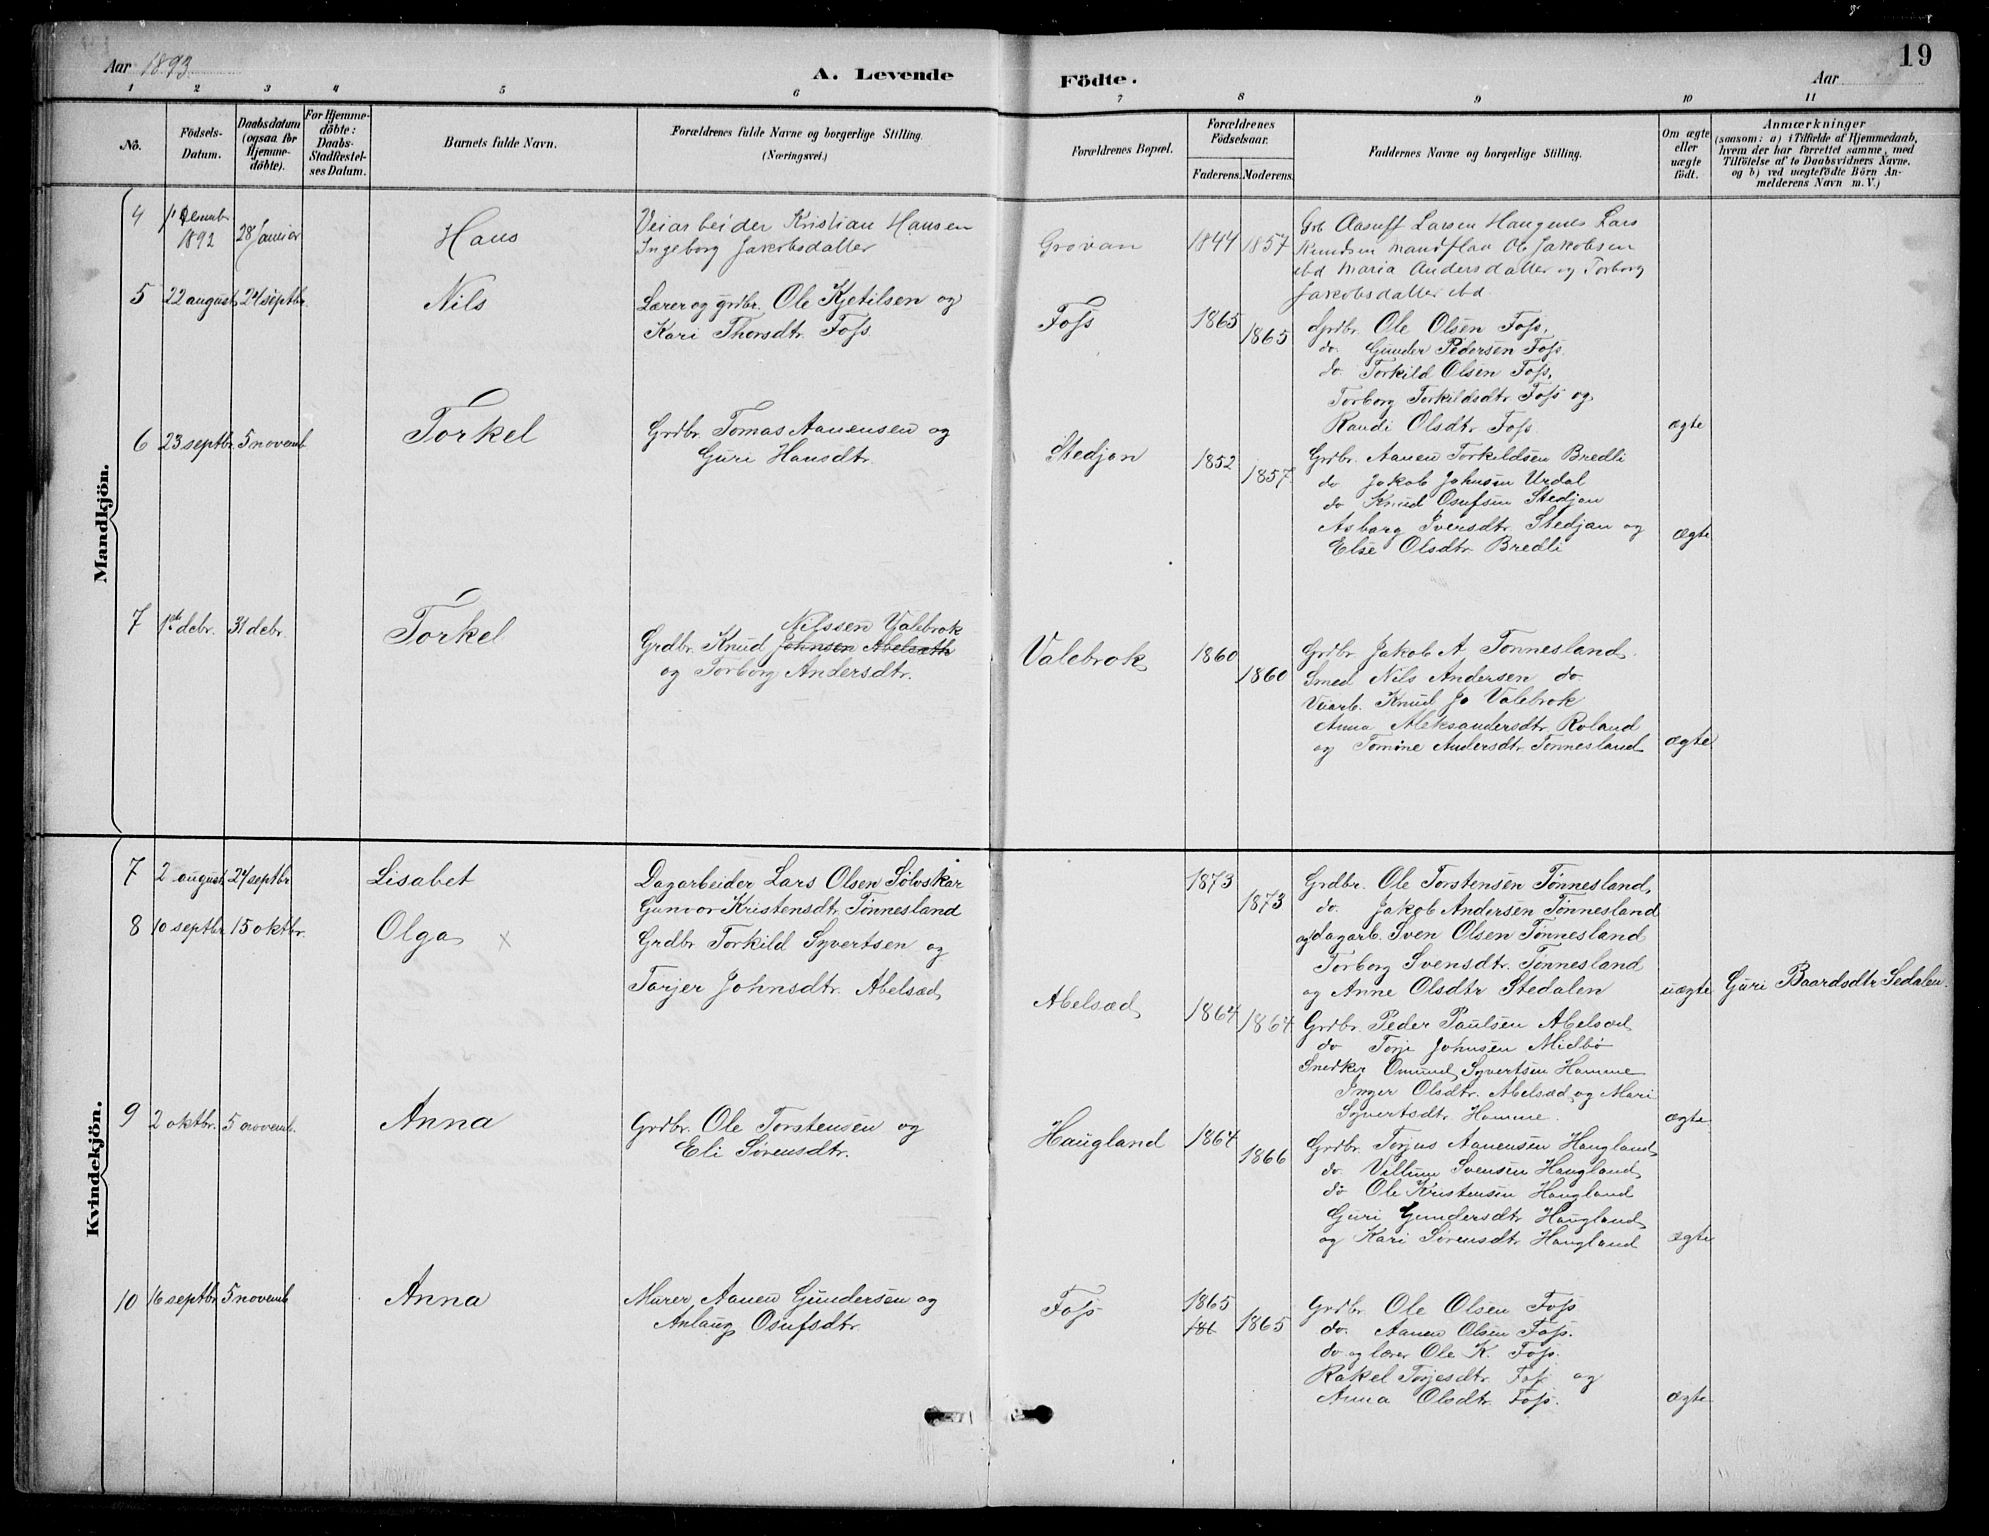 19
Aar 1893
A. Levende Födte.
Aar
1 2 3 4 5 6 7 8 9 10 11
No.
Födsels-Datum.
Daabsdatum (ogsaa for Hjemme-döbte).
For Hjemme-döbte: Daabs-Stadfæstel-ses Datum.
Barnets fulde Navn.
Forældrenes fulde Navne og borgerlige Stilling.
(Næringsvei.)
Forældrenes Bopæl.
Forældrenes Födselsaar.
Faderens. Moderens.
Faddernes Navne og borgerlige Stilling.
Om ægte eller uægte födt.
Anmærkninger
(saasom: a) i Tilfælde af Hjemmedaab,
hvem der har forrettet samme, med
Tilföielse af to Daabsvidners Navne.
og b) ved uægtefödte Börn An-
melderens Navn m. V.)
Mandkjön.
4
1892
28 Januar
Hans
Veiarbeider Kristian Hansen
Ingeborg Jakobsdatter
Grovan
1844 1857
Aasulf Larsen Haugenes Lars
Knudsen Jakobsen
ibd Maria Andersdatter og Torborg
Jakobsdatter ibd
5
22 august
24 septbr.
Nils
Lærer og grdbr. Ole Kjetilsen og
Kari Thorsdtr. Foss
Foss
1865 1865
Grdbr. Ole Olsen Foss.
do. Gunder Pedersen Foss.
do. Torkild Olsen Foss.
Torborg Torkildsdtr Foss og
Randi Olsdtr. Foss.
ægte
6
23 septbr.
5 novemb.
Torkel
Grdbr. Tomas Aanensen og
Guri Hansdtr.
Stedjan
1852 1857
Grdbr. Aanen Torkildsen Bredli
do Jakob Johnsen Urdal
do Knud Osufsen Stedjan
Asborg Iversdtr. Stedjan og
Else Olsdtr. Bredli
ægte
7
1ste debr.
31 debr.
Torkel
Nilssen Valebrok
Grdbr. Knud Johnsen Abelsæth
og Torborg Andersdtr.
Valebrok
1860 1860
Grdbr. Jakob A. Tønnesland
Smed Nils Andersen do
Veiarb. Knud Jo Valebrok
Anna Aleksandersdtr. Roland
og Tomine Andersdtr. Tønnesland
ægte
Kvindekjön.
7
2 august
24 septbr
Lisabet
Dagarbeider Lars Olsen Sølvskar
Gunvor Kristensdtr. Tønnesland
1873 1873
Grdbr. Ole Torstensen Tønnesland,
do. Jakob Andersen Tønnesland
og dagarb. Sven Olsen Tønnesland
Torborg Svensdtr. Tønnesland
og Anne Olsdtr Stedalen
uægte
Guri Baardsdtr Sedalen.
8
10 septbr.
15 oktbr.
Olga x
Grdbr. Torkild Syvertsen og
Tarjer Johnsdtr. Abelsæd
Abelsæd
1864 1864
Grdbr. Peder Paulsen Abelsæd
do Torje Johnsen Midbø
Snedker Omund Syvertsen Homme
Inger Olsdtr. Abelsæd og Mari
Syvertsdtr. Homme.
ægte
9
2 oktbr.
5 novemb.
Anna
Grdbr. Ole Torstensen og
Eli Sørensdtr.
Haugland
1864 1866
Grdbr. Torjus Aanensen Haugland,
do. Villum Svensen Haugland,
do Ole Kristensen Haugland
Guri Gundersdtr Haugland
og Kari Sørensdtr. Haugland
ægte
10
16 septbr.
5 novemb
Anna
Murer Aanen Gundersen og
Anlaug Osufsdtr.
Foss
1865
186
1865
Grdbr. Ole Olsen Foss
do. Aanen Olsen Foss.
do og lærer Ole K. Foss.
Rakel Torjesdtr. Foss og
Anna Olsdtr. Foss.
ægte